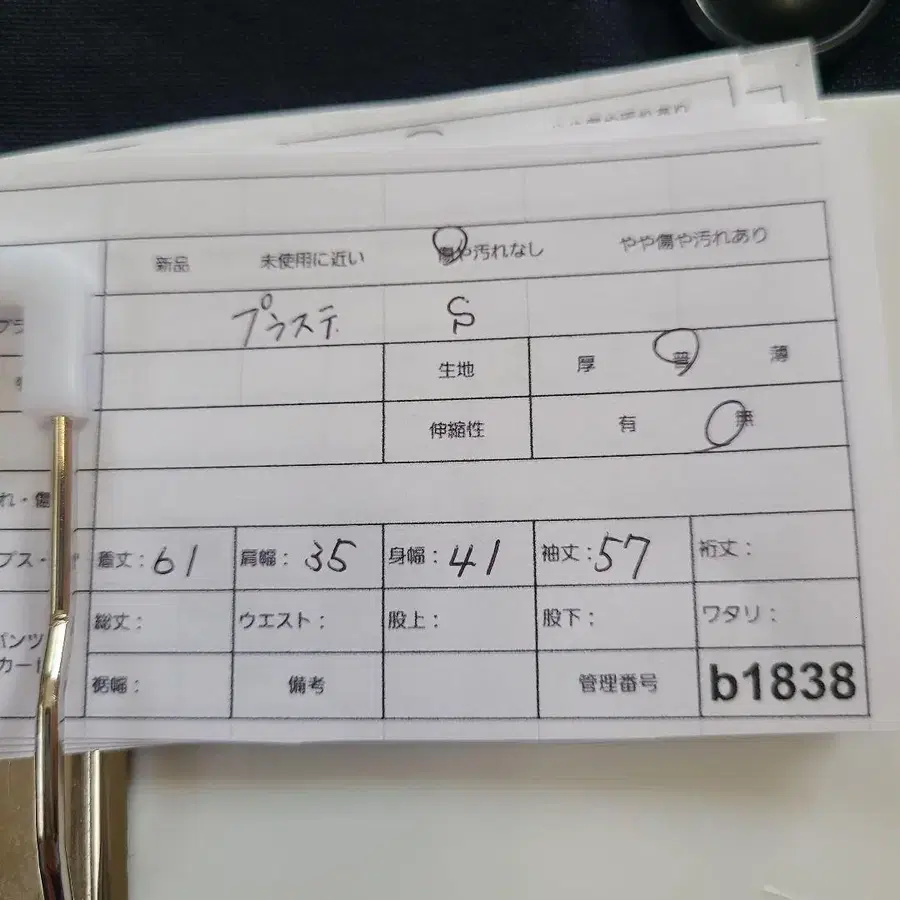 新品 未使用に近い 傷や汚れなし やや傷や汚れあり
プラステ S
生地 厚 普 薄
伸縮性 有 無
れ・傷
プス・ 着丈:61 肩幅:35 身幅:41 袖丈:57 裄丈:
総丈: ウエスト: 股上: 股下: ワタリ:
パンツ
カート
裾幅: 備考 管理番号 b1838